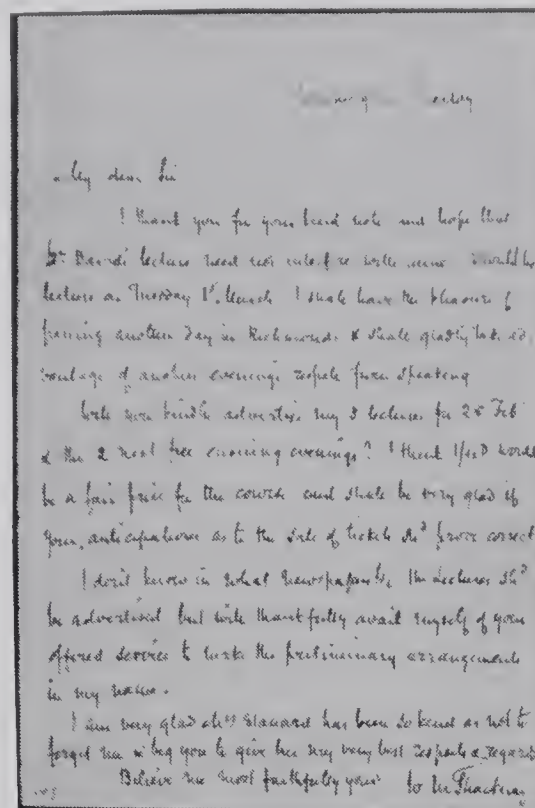 My dear Sir
I thank you for your kind note and hope that
Dr. Baird's lecture need not interfere with mine. Should he
lecture on Tuesday 1st. March I shall have the pleasure of
passing another day in Richmond & shall gladly take ad-
vantage of another evenings respite from speaking
Will you kindly advertise my 3 lectures for 28 Feb
& the 2 next free ensuing evenings? I think would
be a fair price for the course and shall be very glad if
your anticipations as to the sale of tickets shd. prove correct
I don't know in what newspapers the Lectures shd.
be advertised but will thankfully avail myself of your
offered service to make the preliminary arrangements
in my name.
I am very glad has been so kind as not to
forget me & beg you to give her my very best respects & regards
Believe me most faithfully yours W M Thackeray